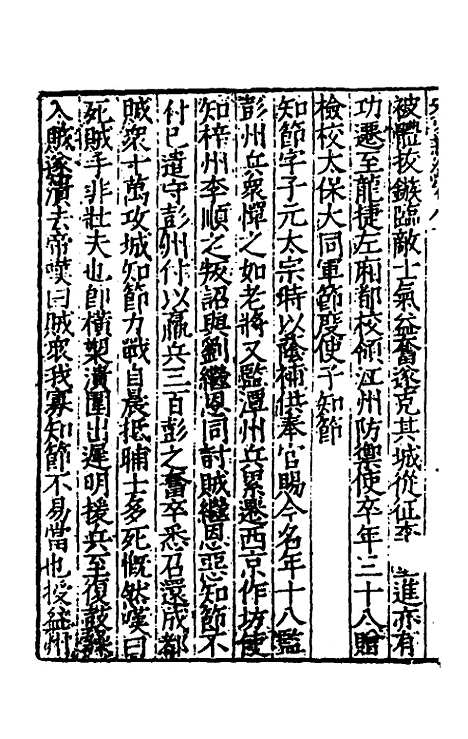 被體拔鏃臨敵士氣益奮遂克其城從征李進亦有
功遷至龍捷左廂都校領江州防禦使卒年三十八贈
檢校太保大同軍節度使子知節
知節字子元太宗時以䕃補供奉官賜今名年十八監
彭州兵衆憚之如老將又監潭州兵累遷西京作坊使
知梓州李順之叛詔與劉繼恩同討賊繼恩惡知節不
付巳遣守彭州付以羸兵三百彭之舊卒悉召還成都
賊衆十萬攻城知節力戰自晨抵晡士多死慨然嘆曰
死賊手非壯夫也卽橫槊潰圍出遲明援兵至復鼓譟
入賊遂潰去帝嘆曰賊衆我寡知節不易當也授益州